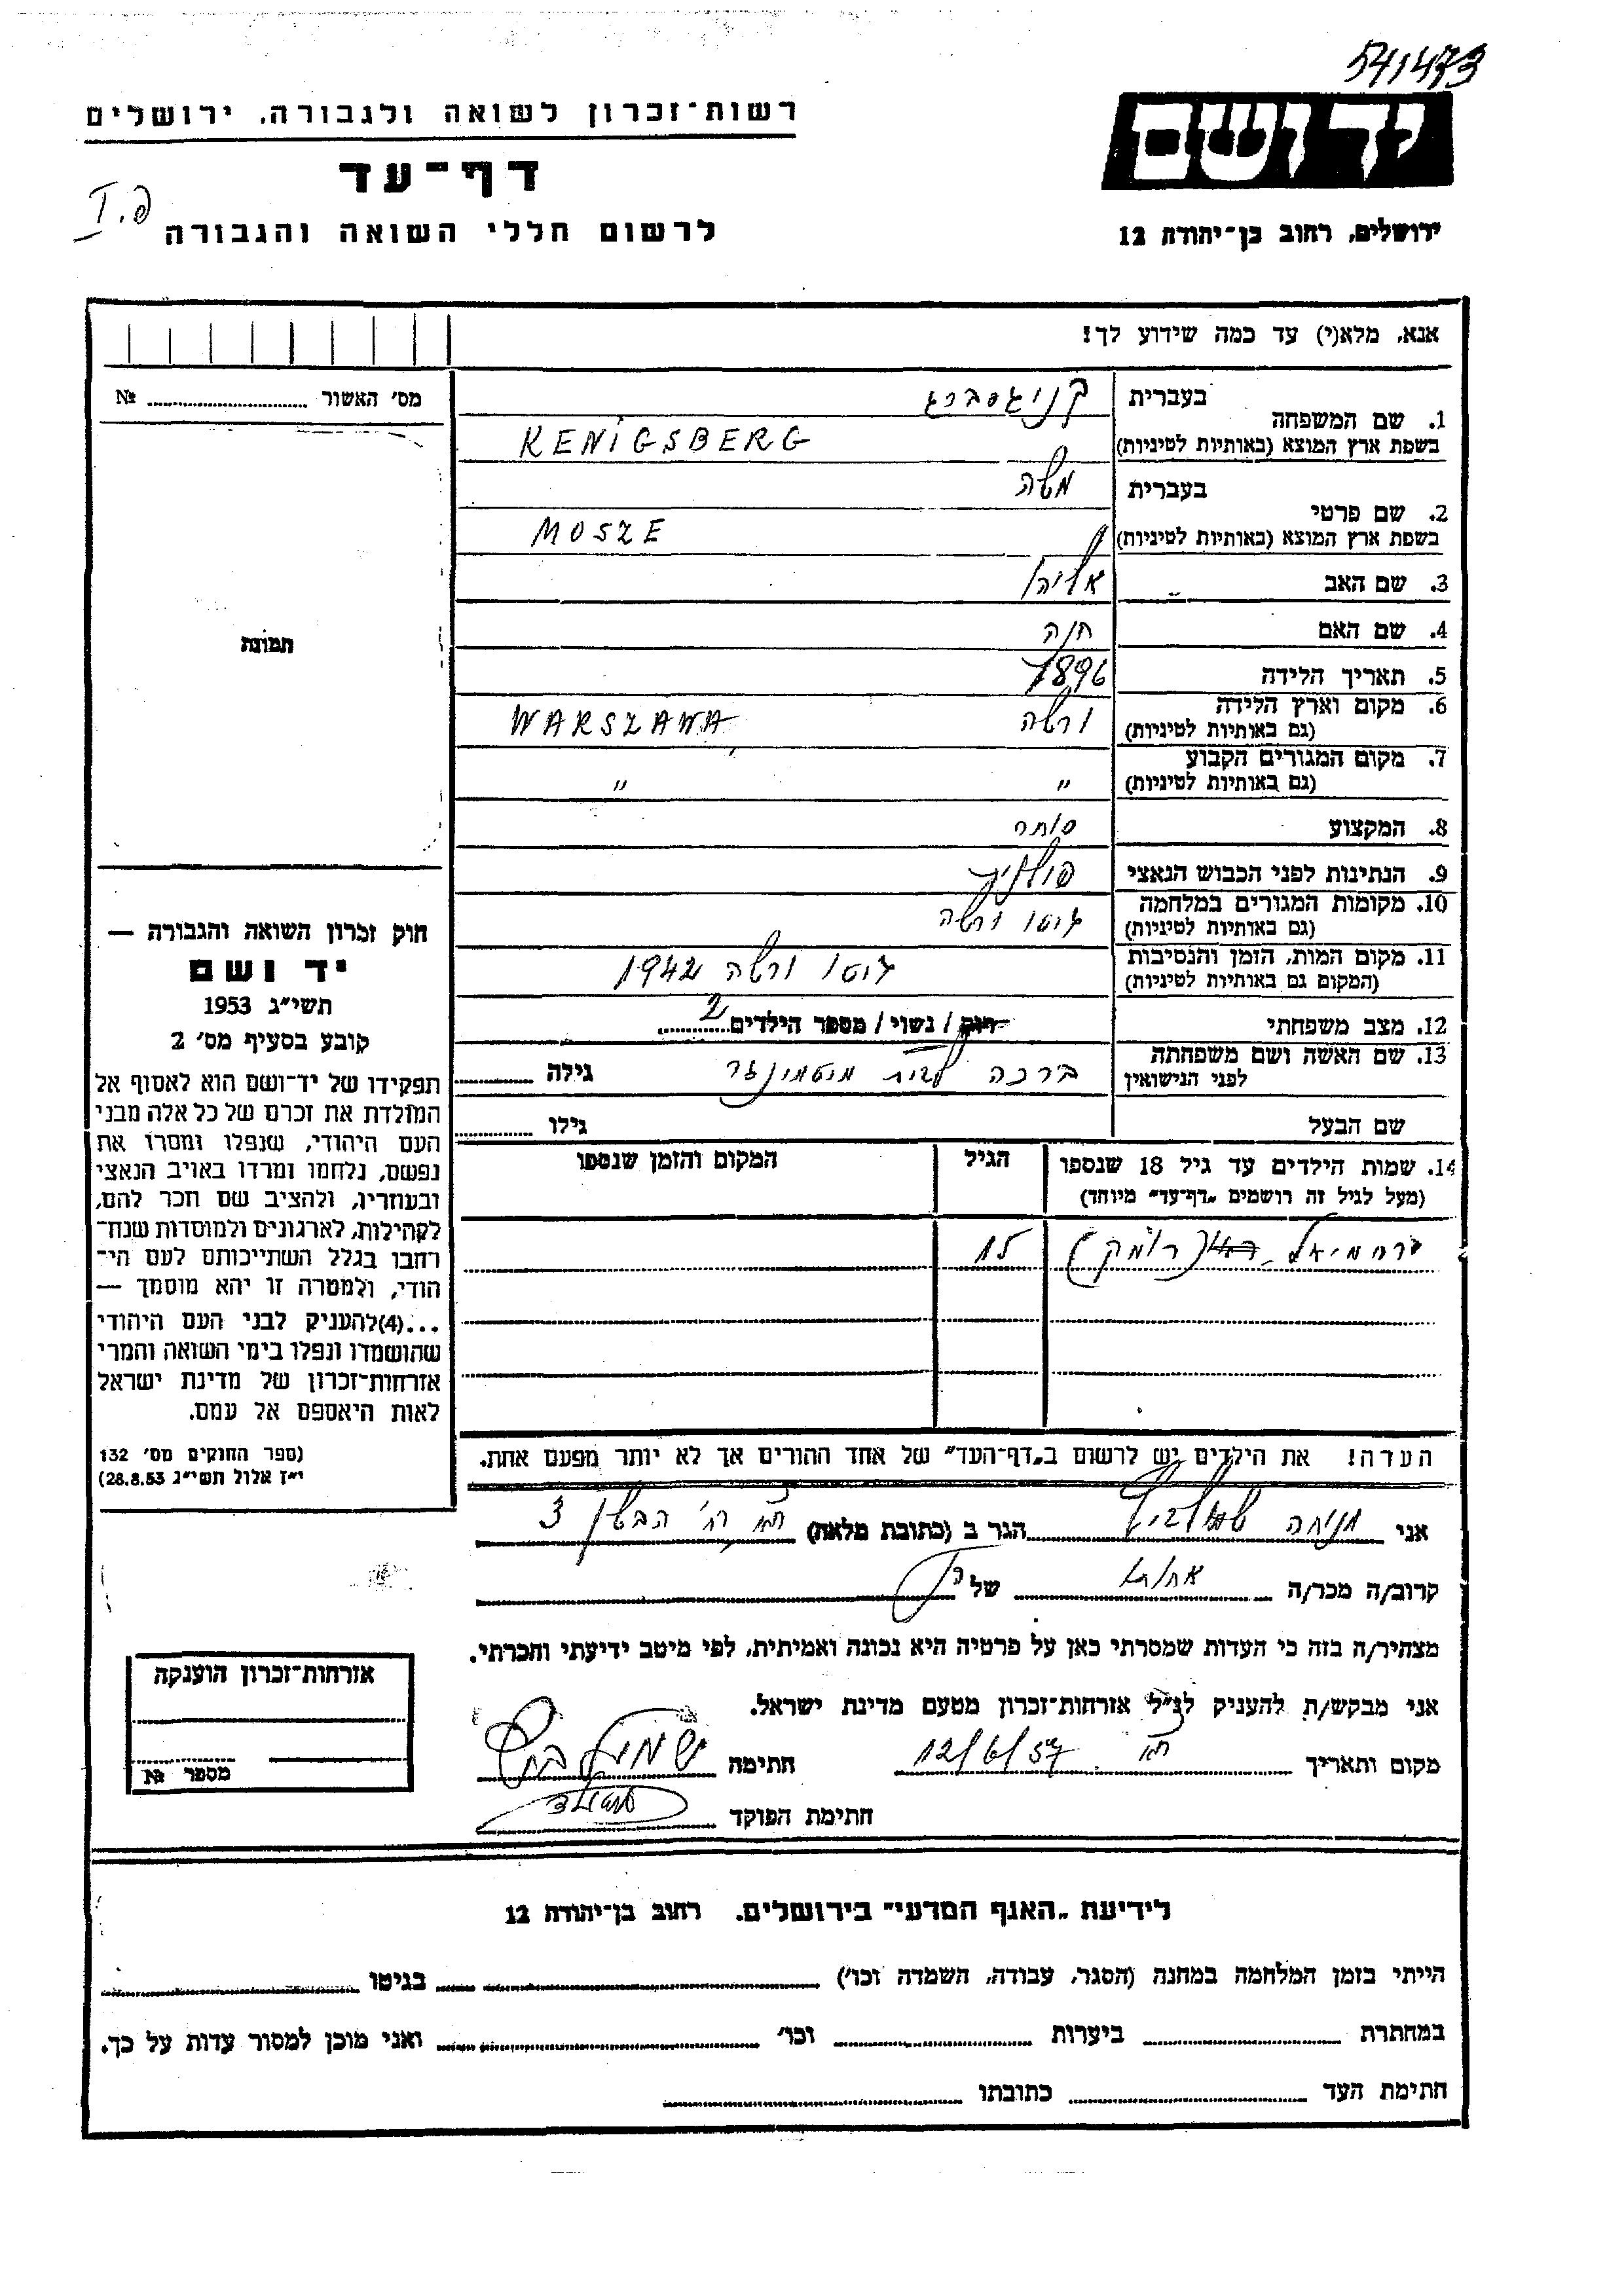 541473
רשות־זכרון לשואה ולגבורה, ירושלים
ידושם
דף־עד
לרשום חללי השואה והגבורה
ירושלים, רחוב בן־יהודה 12
אנא, מלא(י) עד כמה שידוע לך!
מס' האשור № 
1. שם המשפחה
בעברית קניגסברג
בשפת ארץ המוצא (באותיות לטיניות) KENIGSBERG
2. שם פרטי
בעברית משה
בשפת ארץ המוצא (באותיות לטיניות) MOSZE
3. שם האב אליהו
4. שם האם חנה
5. תאריך הלידה 1896
6. מקום וארץ הלידה ורשה WARSZAWA
(גם באותיות לטיניות)
7. מקום המגורים הקבוע " "
(גם באותיות לטיניות)
8. המקצוע סוחר
9. הנתינות לפני הכבוש הנאצי פולנית
10. מקומות המגורים במלחמה גיטו ורשה
(גם באותיות לטיניות)
11. מקום המות, הזמן והנסיבות גיטו ורשה 1942
(המקום גם באותיות לטיניות)
12. מצב משפחתי רווק / נשוי / מספר הילדים 2
13. שם האשה ושם משפחתה ברכה לבית
לפני הנישואין
גילה
שם הבעל גילו
14. שמות הילדים עד גיל 18 שנספו הגיל המקום והזמן שנספו
(מעל לגיל זה רושמים "דף־עד" מיוחד)
ירחמיאל (רומק) 15
תמונה
חוק זכרון השואה והגבורה —
יד ושם
תשי״ג 1953
קובע בסעיף מס' 2
תפקידו של יד־ושם הוא לאסוף אל
המולדת את זכרם של כל אלה מבני
העם היהודי, שנפלו ומסרו את
נפשם, נלחמו ומרדו באויב הנאצי
ובעוזריו, ולהציב שם וזכר להם,
לקהילות, לארגונים ולמוסדות שנח־
רבו בגלל השתייכותם לעם הי־
הודי, ולמטרה זו יהא מוסמך —
...(4)להעניק לבני העם היהודי
שהושמדו ונפלו בימי השואה והמרי
אזרחות־זכרון של מדינת ישראל
לאות היאספם אל עמם.
(ספר החוקים מס' 132
י״ז אלול תשי״ג 28.8.53)
הערה! את הילדים יש לרשום ב„דף־העד" של אחד ההורים אך לא יותר מפעם אחת.
אני הגר ב (כתובת מלאה) 3
קרוב/ה מכר/ה של
מצהיר/ה בזה כי העדות שמסרתי כאן על פרטיה היא נכונה ואמיתית, לפי מיטב ידיעתי והכרתי.
אני מבקש/ת להעניק לנ״ל אזרחות־זכרון מטעם מדינת ישראל.
מקום ותאריך 12/6/57 חתימה
חתימת הפוקד
אזרחות־זכרון הוענקה
מספר №
לידיעת „האגף המדעי" בירושלים, רחוב בן־יהודה 12
הייתי בזמן המלחמה במחנה (הסגר, עבודה, השמדה וכו') בגיטו
במחתרת ביערות וכו' ואני מוכן למסור עדות על כך.
חתימת העד כתובתו